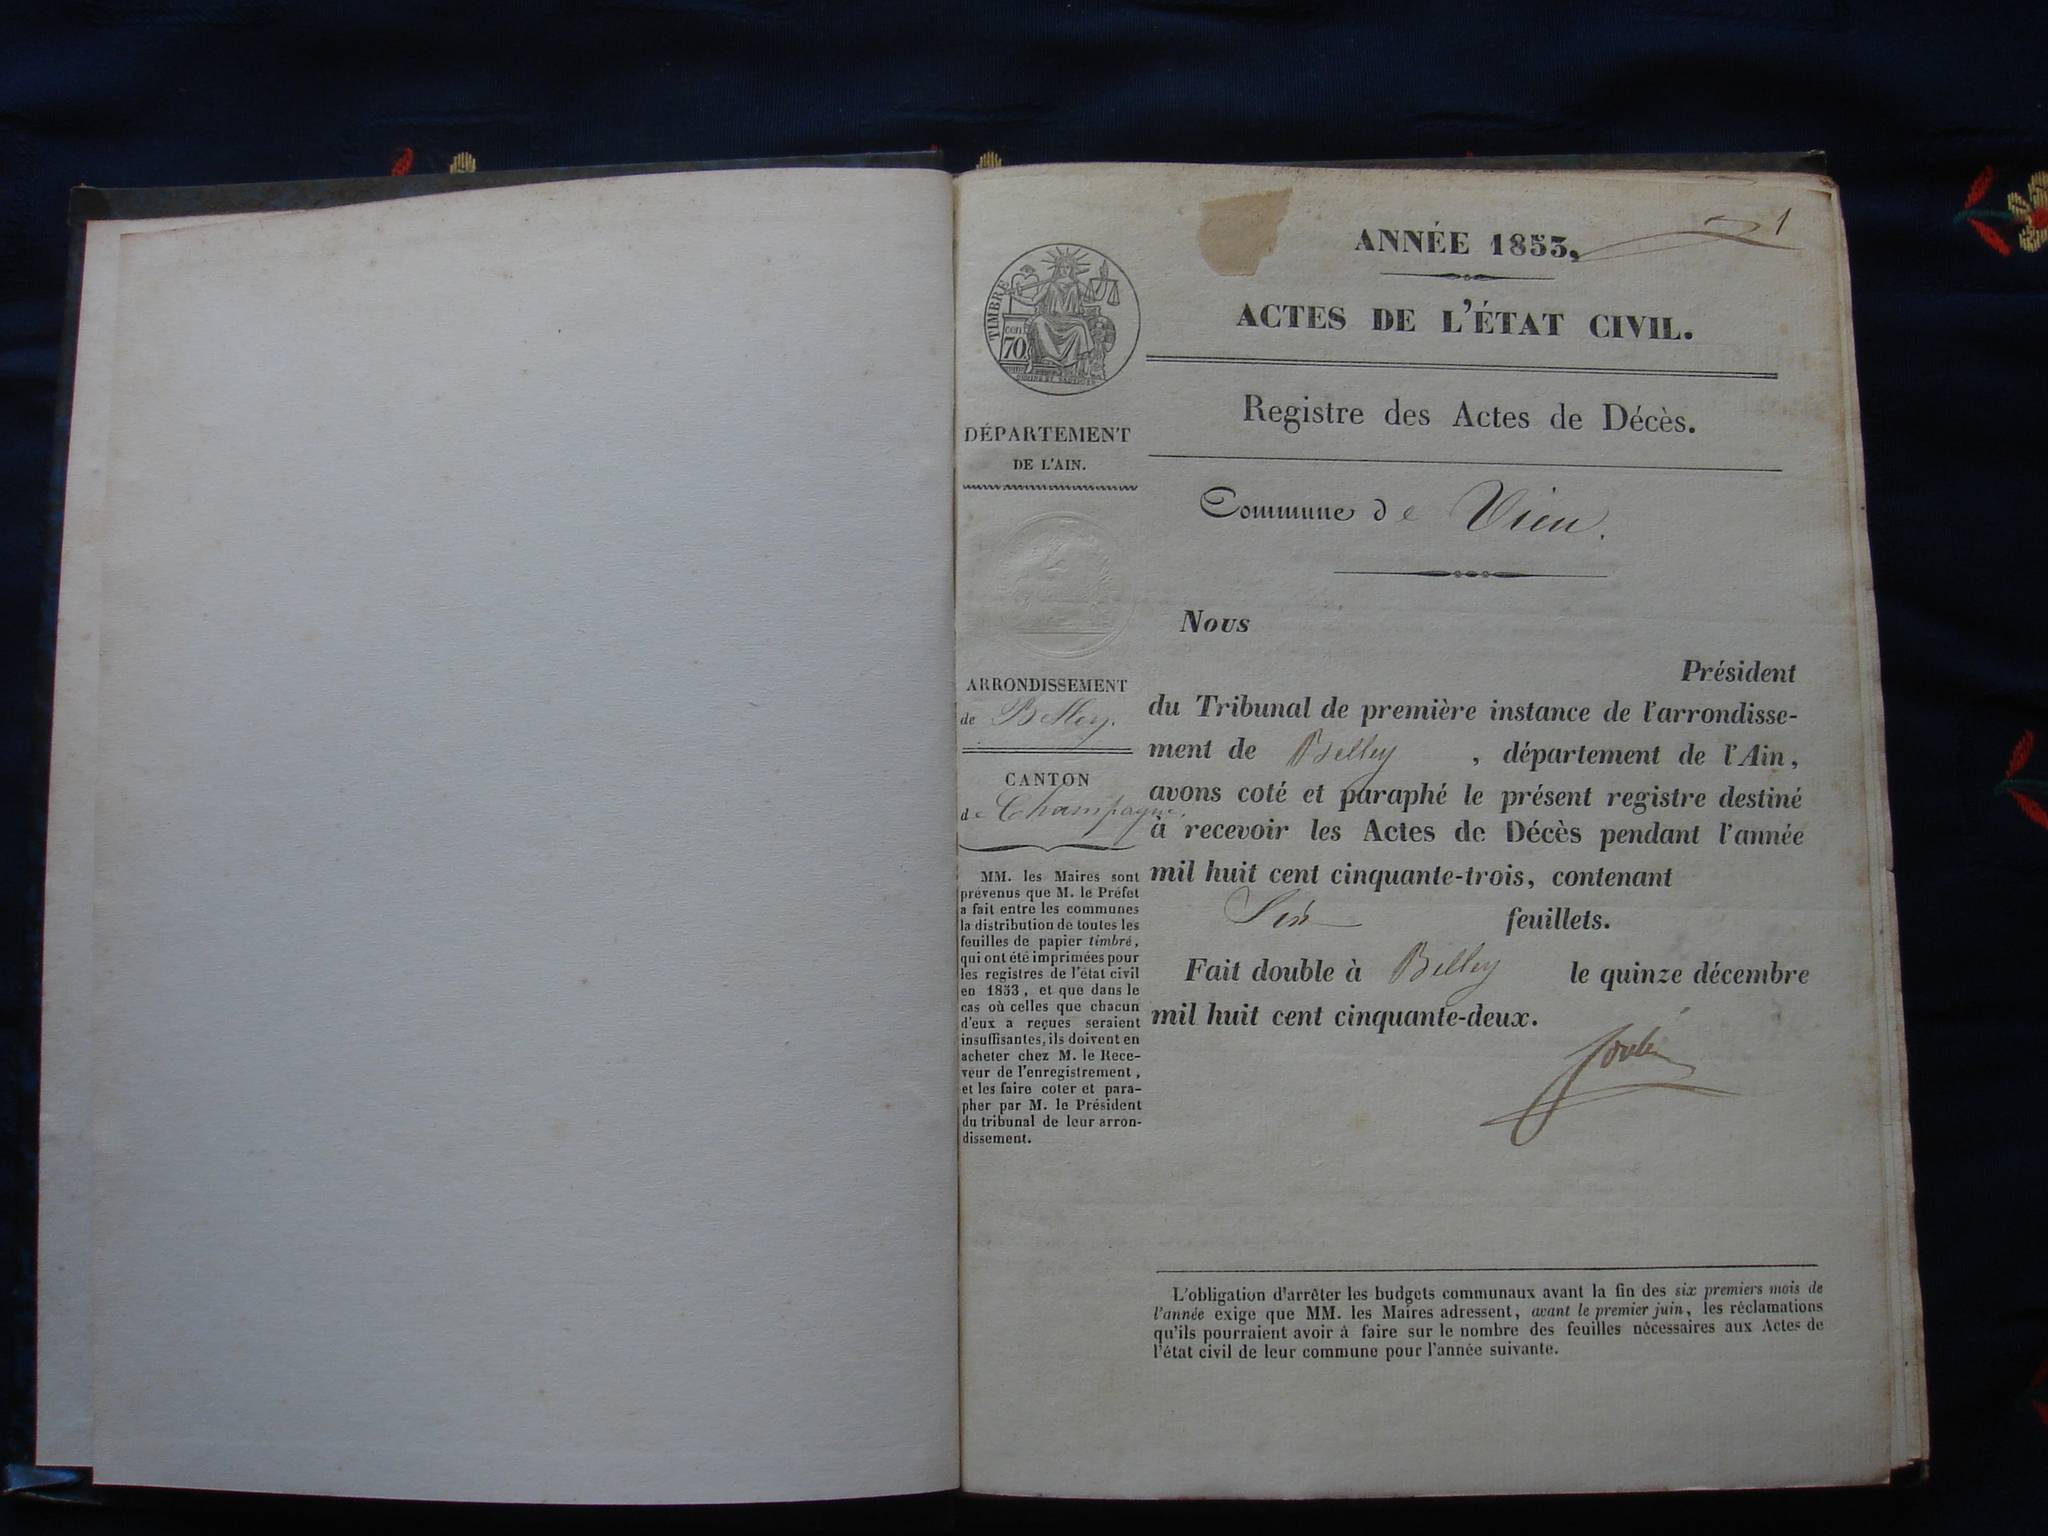 1
ANNÉE 1853,
ACTES DE L'ÉTAT CIVIL.
Registre des Actes de Décès.
Commune de Vieu.
Nous
Président
du Tribunal de première instance de l'arrondisse-
ment de Belley , département de l'Ain,
avons coté et paraphé le présent registre destiné
à recevoir les Actes de Décès pendant l'année
mil huit cent cinquante-trois, contenant
Six feuillets.
Fait double à Belley le quinze décembre
mil huit cent cinquante-deux.
TIMBRE
cen
70
DÉPARTEMENT
DE L'AIN.
ARRONDISSEMENT
de Belley.
CANTON
de Champagne.
MM. les Maires sont
prévenus que M. le Préfet
a fait entre les communes
la distribution de toutes les
feuilles de papier timbré,
qui ont été imprimées pour
les registres de l'état civil
en 1853, et que dans le
cas où celles que chacun
d'eux a reçues seraient
insuffisantes, ils doivent en
acheter chez M. le Rece-
veur de l'enregistrement,
et les faire coter et para-
pher par M. le Président
du tribunal de leur arron-
dissement.
L'obligation d'arrêter les budgets communaux avant la fin des six premiers mois de
l'année exige que MM. les Maires adressent, avant le premier juin, les réclamations
qu'ils pourraient avoir à faire sur le nombre des feuilles nécessaires aux Actes de
l'état civil de leur commune pour l'année suivante.